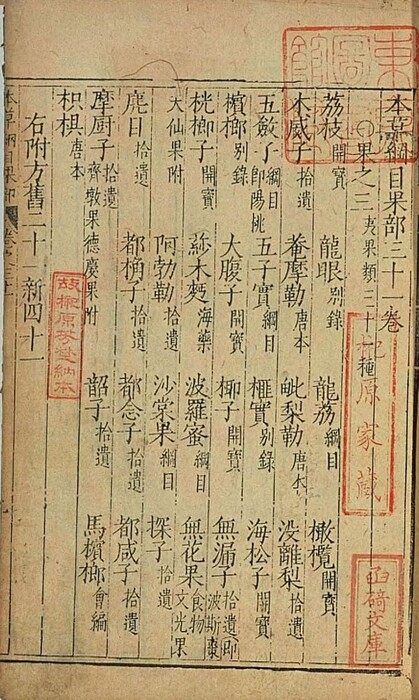 本草綱目果部三十一卷
○果之三 夷果類三十一種
荔枝 開寶 龍眼 別錄 龍荔 綱目 橄欖 開寶
木威子 拾遺 菴摩勒 唐本 毗梨勒 唐本 没離梨 拾遺
五斂子 綱目 卽陽桃 五子實 綱目 榧實 別錄 海松子 開寶
檳榔 別錄 大腹子 開寶 椰子 開寶 無漏子 拾遺 卽波斯棗
桄榔子 開寶 莎木麪 海藥 波羅蜜 綱目 無花果 食物 文光果
天仙果附 阿勃勒 拾遺 沙棠果 綱目 㮑子 拾遺
麂目 拾遺 都桷子 拾遺 都念子 拾遺 都咸子 拾遺
摩厨子 拾遺 齊墩果德慶果附 韶子 拾遺 馬檳榔 會編
枳椇 唐本
右附方舊二十一新四十一
家藏
文庫